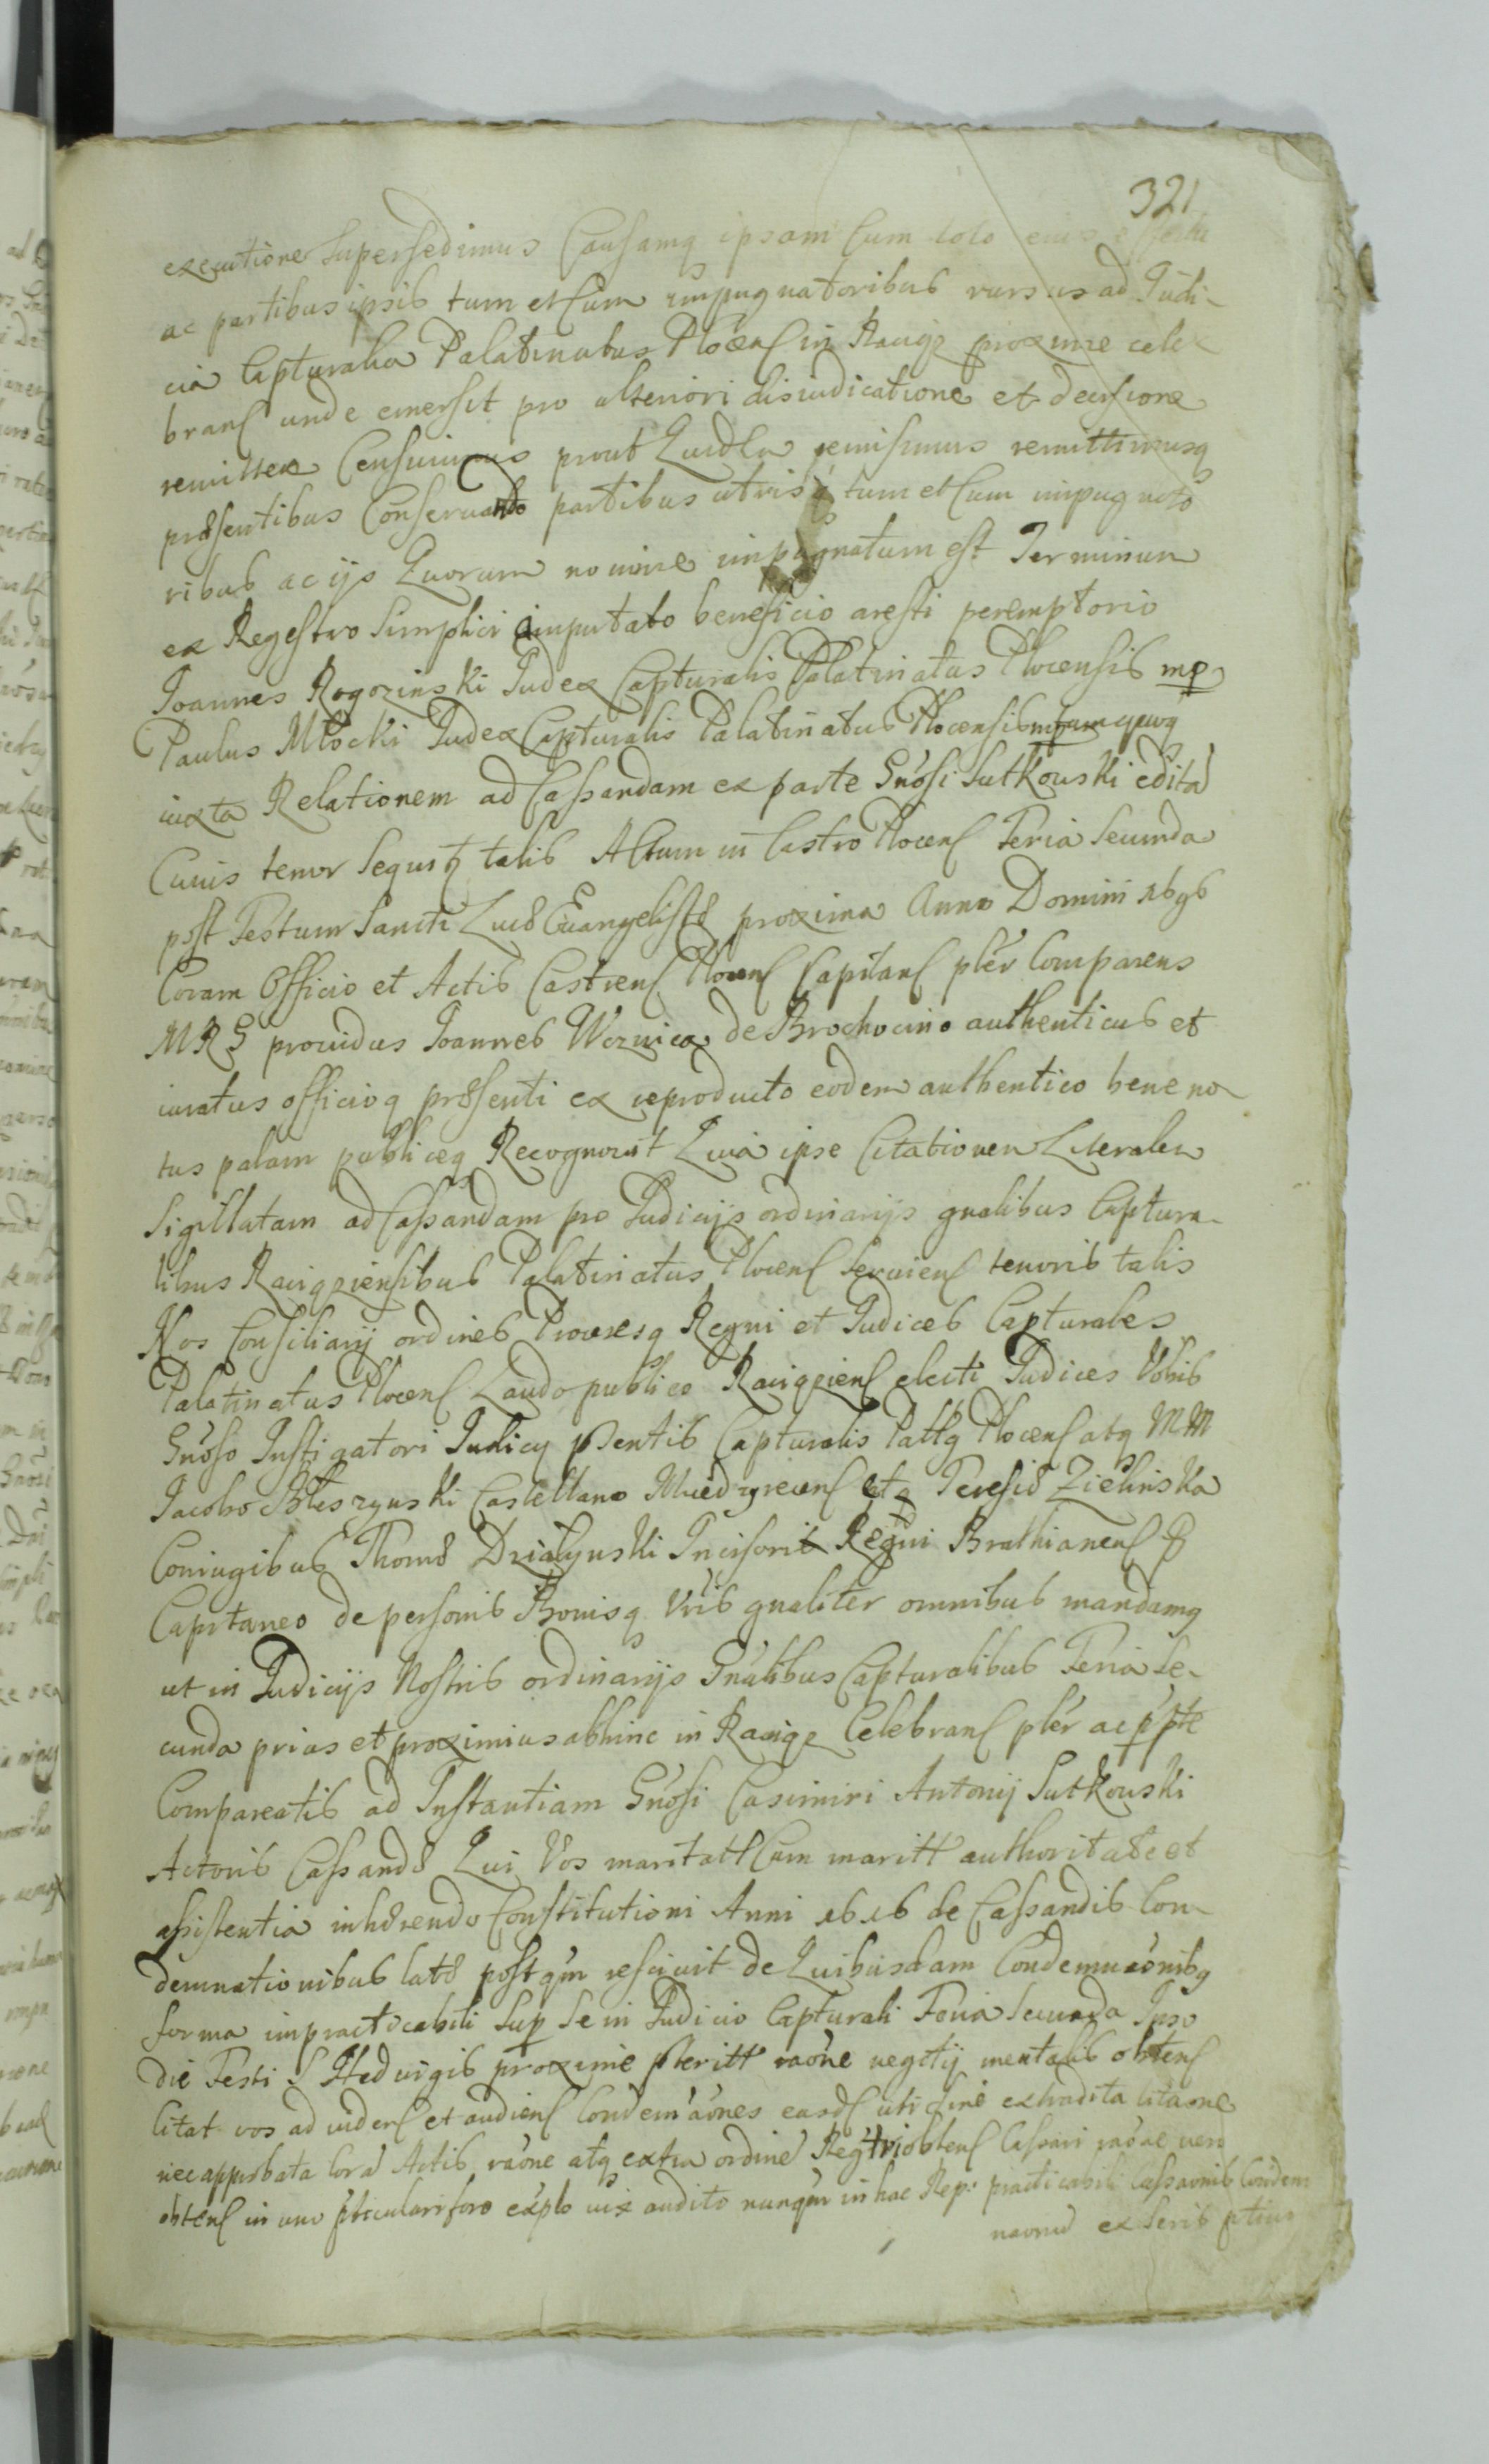 321
executione supersedimus Causamq ipsam Cum toto eius effectu
ac partibus ipsis tum et Cum impugnatoribus rursus ad Judi-
cia Capturalia Palatinatus Plocen in Raciąz proxime cele-
bran unde emersit pro ulteriori disiudicatione et decisione
remitten Censuimus prout remisimus remittimusq
præsentibus Conservando partibus utrisq tum et Cum impugnato
ribus ac ijs Quorum nomine impugnatum est Terminum
ex Regestro Simplici imputato beneficio aresti peremptorio
Joannes Rogozinski Judex Capturalis Palatinatus Plocensis mp
Paulus Młocki Judex Capturalis Palatinatus Plocensis
iuxta Relationem ad Cassandam ex parte Gnosi Sutkowski edita
Cuius tenor Sequitq talis Actum in Castro Plocen Feria Secunda
post Festum Sancti Lucæ Evangelistæ proxima Anno Domini 1696
Coram Officio et Actis Castren Plocen Capitan pler Comparens
MRS providus Joannes Woznica de Brochocino authenticus et
iuratus officioq præsenti ex reproducto eodem authentico bene no-
tus palam publiceq Recognovit Quia ipse Citationem Literalem
Sigillatam ad Cassandam pro Judicijs ordinarijs gnalibus Captura-
libus Raciąziensibus Palatinatus Plocen Servien tenoris talis
Nos Consiliarij ordines Proceresq Regni et Judices Capturales
Palatinatus Plocen Laudo publico Raciązien electi Judices Vobis
Gnoso Instigatori Judicij pntis Capturalis Pallq Plocen atq MM
Jacobo Błeszynski Castellano Międzyrecen et Teresiæ Zielinska
Coniugibus Thomæ Działynski Incisoris Regni Brathianen
Capitaneo de personis Bonisq Vris gnaliter omnibus mandamq
ut in Judicijs Nostris ordinarijs Gnalibus Capturalibus Feria Se-
cunda prius et proximius abhinc in Raciąz Celebran pler ac ppte
Compareatis ad Instantiam Gnosi Casimiri Antonij Sutkowski
Actoris Cassandæ Qui Vos maritatt Cum maritt authoritate et
assistentia inhærendo Constitutioni Anni 1616 de Cassandis Con-
demnationibus latæ postqm rescivit de Quibusdam Condemnaonibq
forma impracticabili Sup Se in Judicio Capturali Feria Secunda Ipso
die Festi S Hedvigis proxime pterito raone negotij mentalis obten
Citat vos ad viden et audien Condemnaones easd uti Sine extradita citaone
nec approbata Cora Actis raone atq extra ordine Regtri obten Cassari raone vero
obten in uno pticulari foro explo vix audito nunqm in hac Rep: practicabili Cassaonis Condem
naonum ex Seris ptius